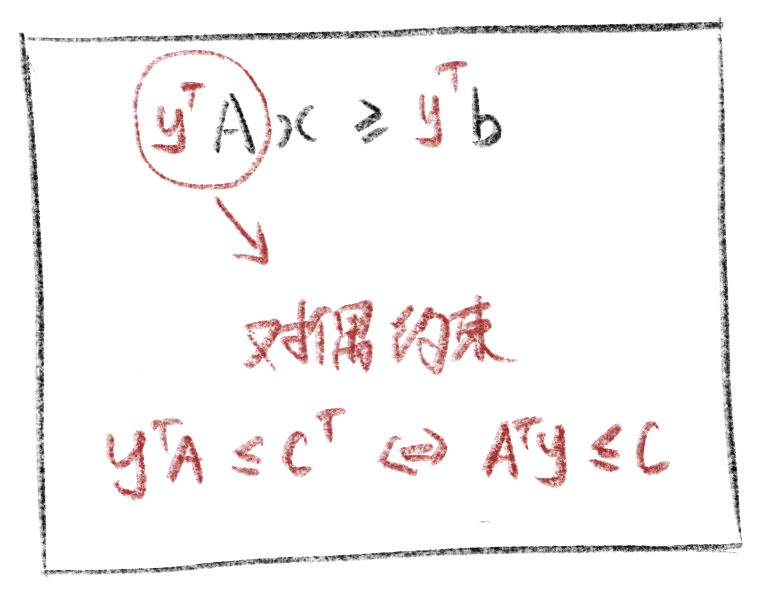 yᵀAx ≥ yᵀb
对偶约束
yᵀA ≤ Cᵀ ⇔ Aᵀy ≤ C